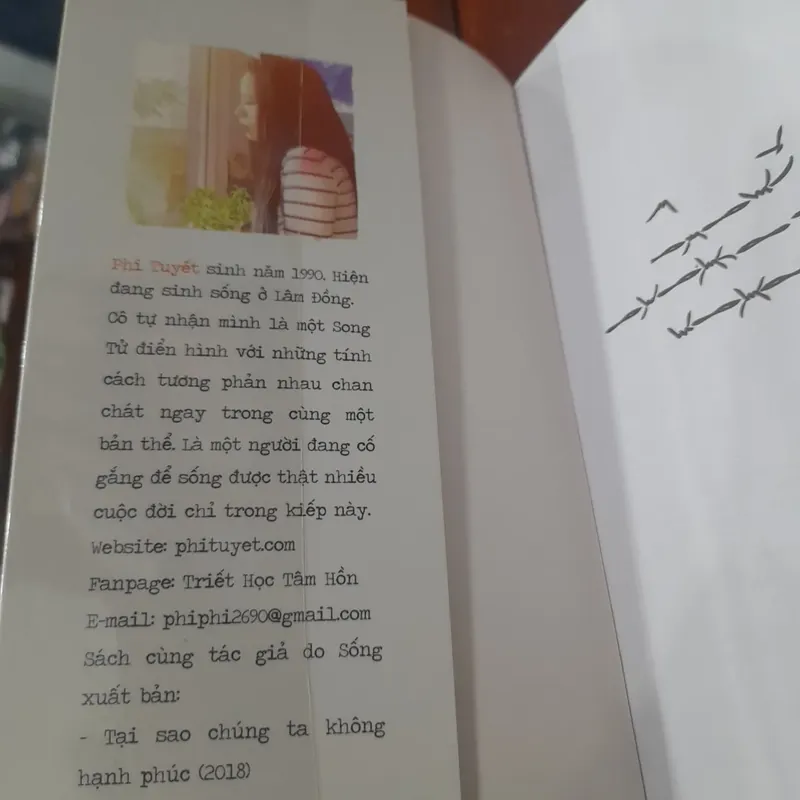 Phi Tuyết sinh năm 1990. Hiện
đang sinh sống ở Lâm Đồng.
Cô tự nhận mình là một Song
Tử điển hình với những tính
cách tương phản nhau chan
chát ngay trong cùng một
bản thể. Là một người đang cố
gắng để sống được thật nhiều
cuộc đời chỉ trong kiếp này.
Website: phituyet.com
Fanpage: Triết Học Tâm Hồn
E-mail: phiphi2690@gmail.com
Sách cùng tác giả do Sống
xuất bản:
- Tại sao chúng ta không
hạnh phúc (2018)